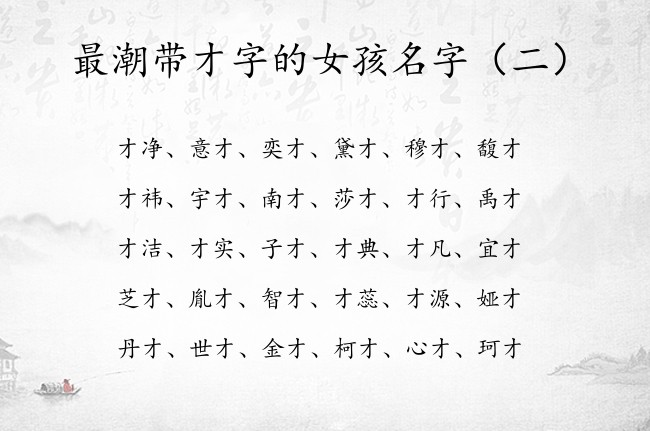 最潮带才字的女孩名字（二）
才净、意才、奕才、黛才、穆才、馥才
才祎、宇才、南才、莎才、才行、禹才
才洁、才实、子才、才典、才凡、宜才
芝才、胤才、智才、才蕊、才源、娅才
丹才、世才、金才、柯才、心才、珂才